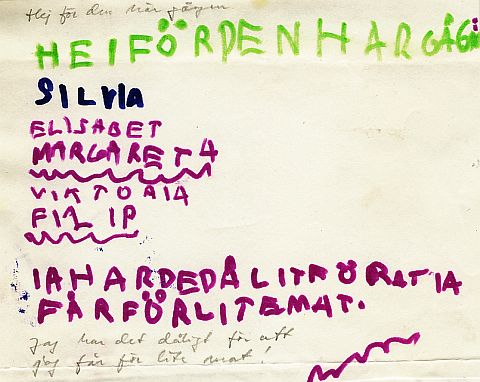 Hej för den här gången
HEIFÖRDENHARGÅGÖ
SILVIA
ELISABET
MARGARETA
VIKTORIA
FILIP
IAHARDEDÅLITFÖRATIA
FÅRFÖRLITEMAT.
Jag har det dåligt för att
jag får för lite mat!